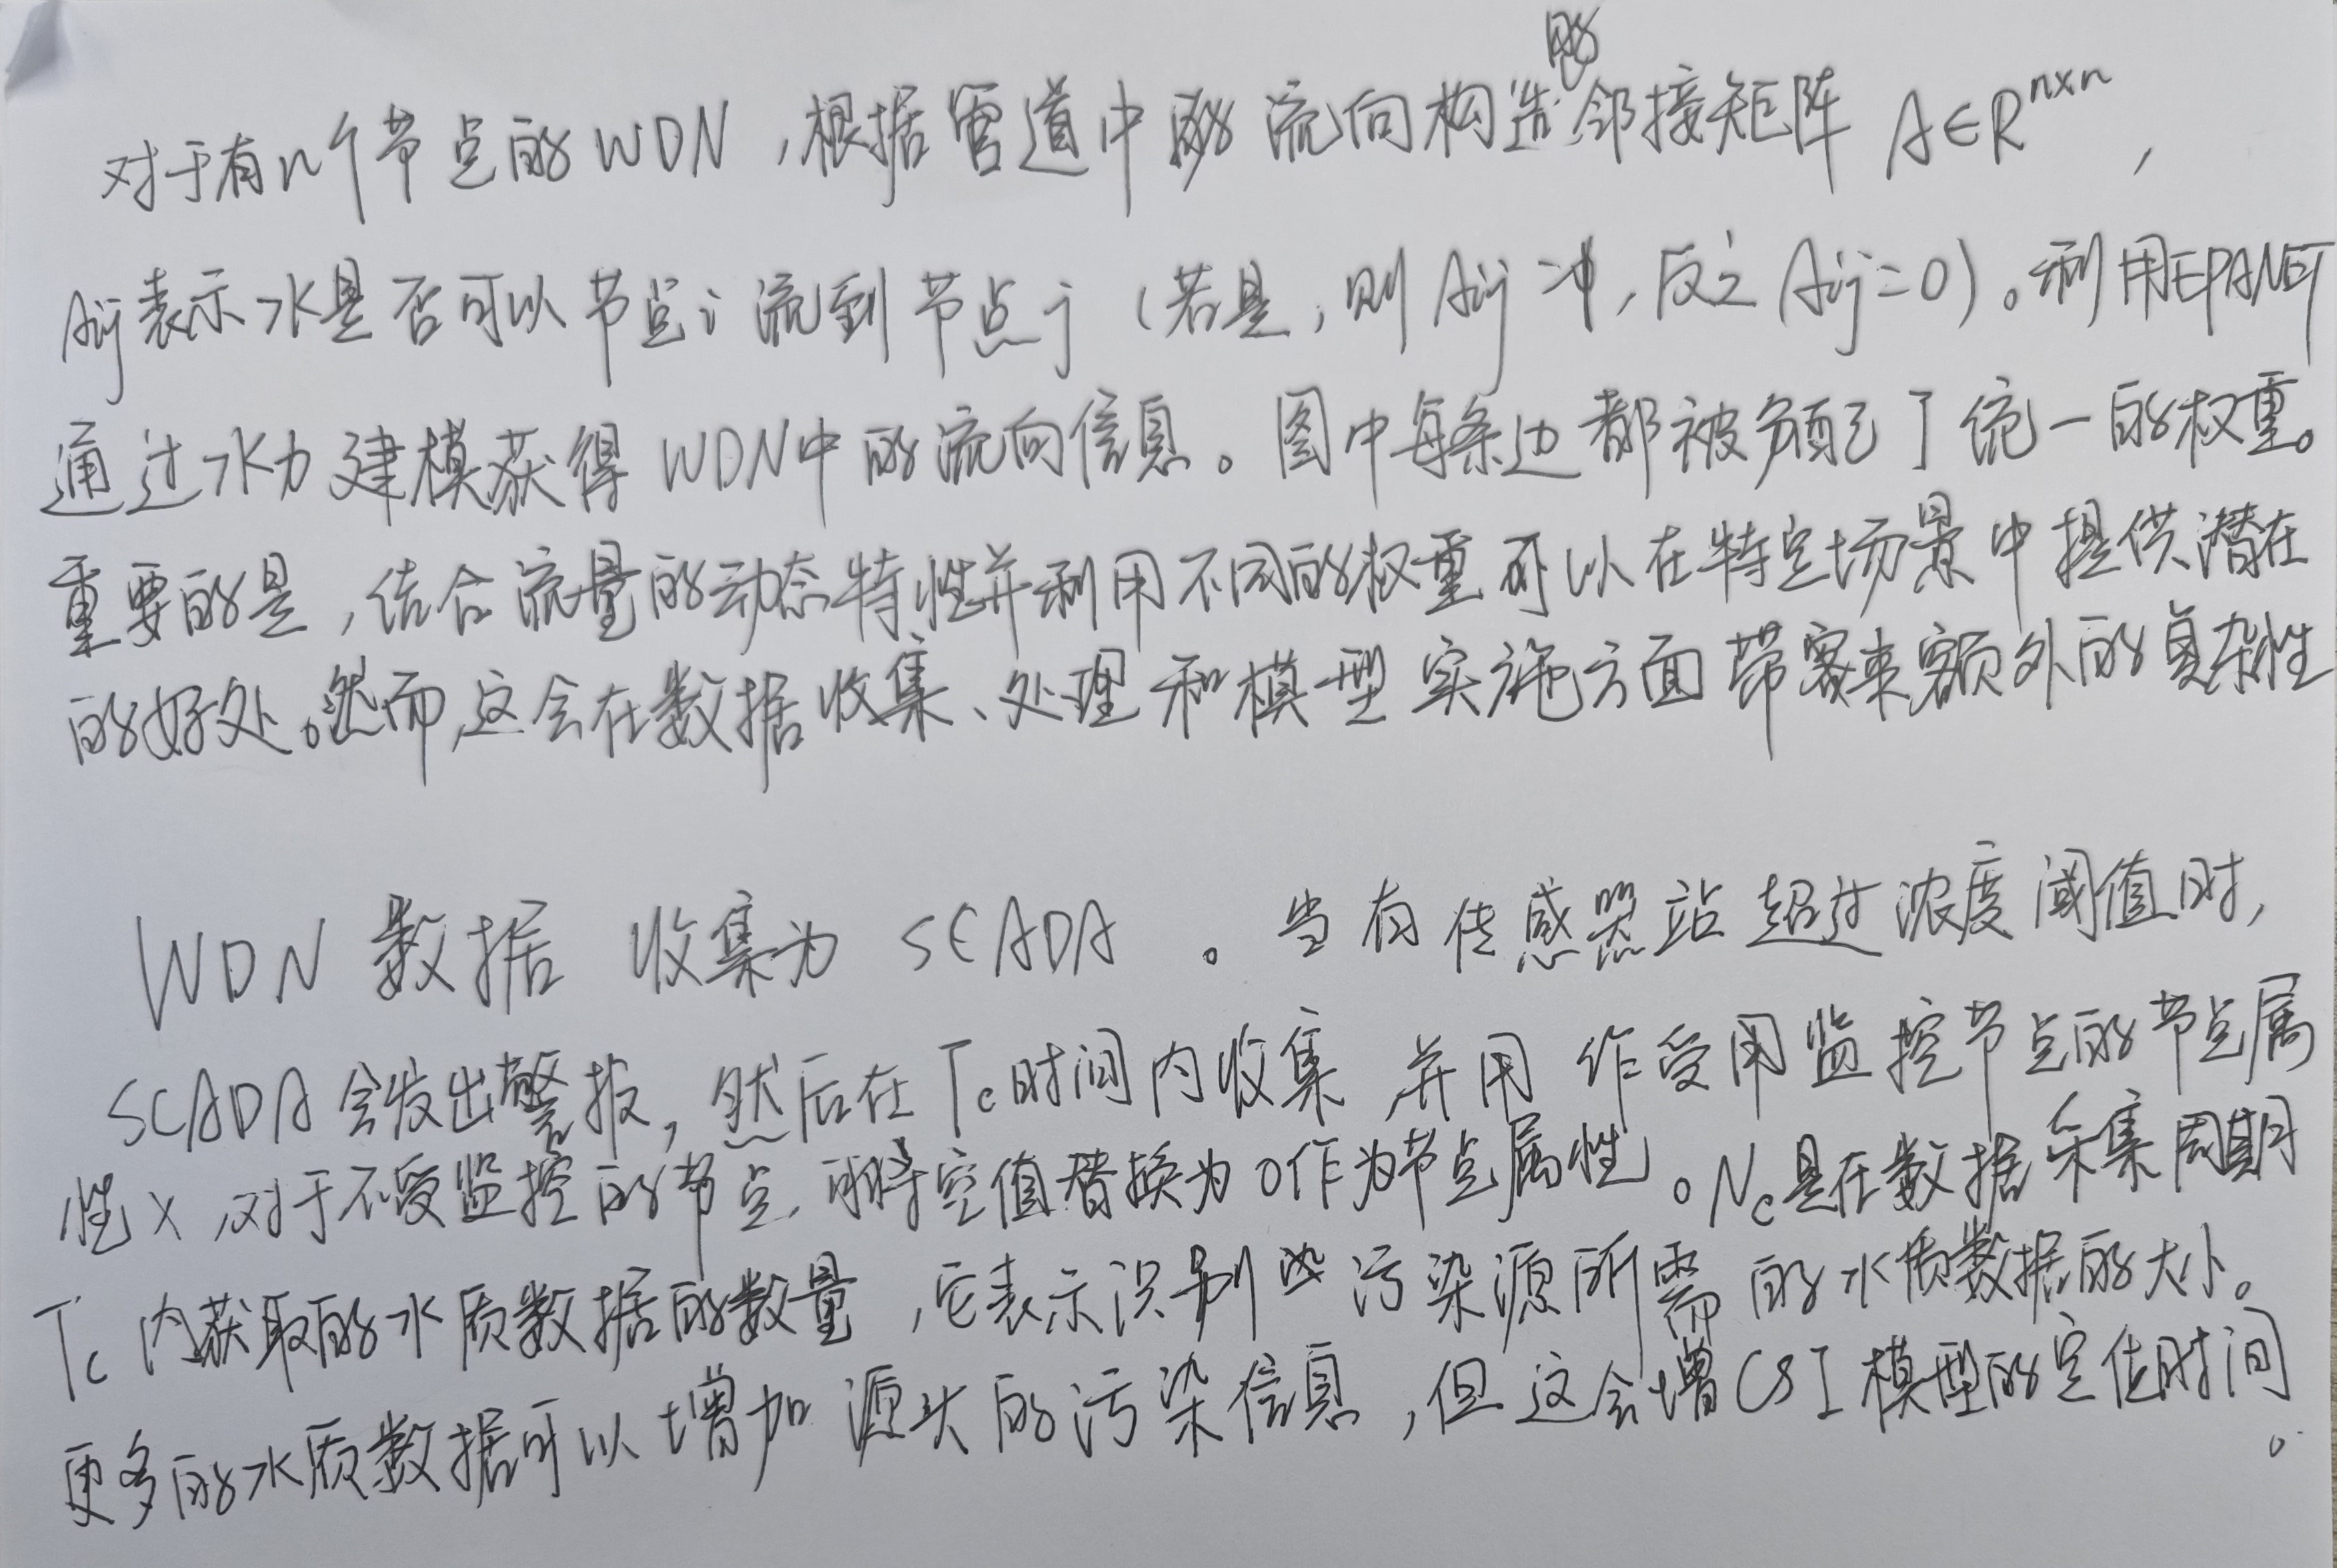 对于有n个节点的WDN，根据管道中的流向构造的邻接矩阵 A∈R^{n×n}，
Aij表示水是否可以节点i流到节点j（若是，则Aij=1，反之Aij=0）。利用EPANET
通过水力建模获得WDN中的流向信息。图中每条边都被分配了统一的权重。
重要的是，结合流量的动态特性并利用不同的权重可以在特定场景中提供潜在
的好处。然而，这会在数据收集、处理和模型实施方面带来额外的复杂性
WDN 数据 收集为 SCADA 。当有传感器站超过浓度阈值时，
SCADA会发出警报，然后在Tc时间内收集，并用作受监控节点的节点属
性X，对于不受监控的节点，将空值替换为0作为节点属性。Nc是在数据采集周期
Tc内获取的水质数据的数量，它表示识别污染源所需的水质数据的大小。
更多的水质数据可以增加源头的污染信息，但这会增CSI模型的定位时间。